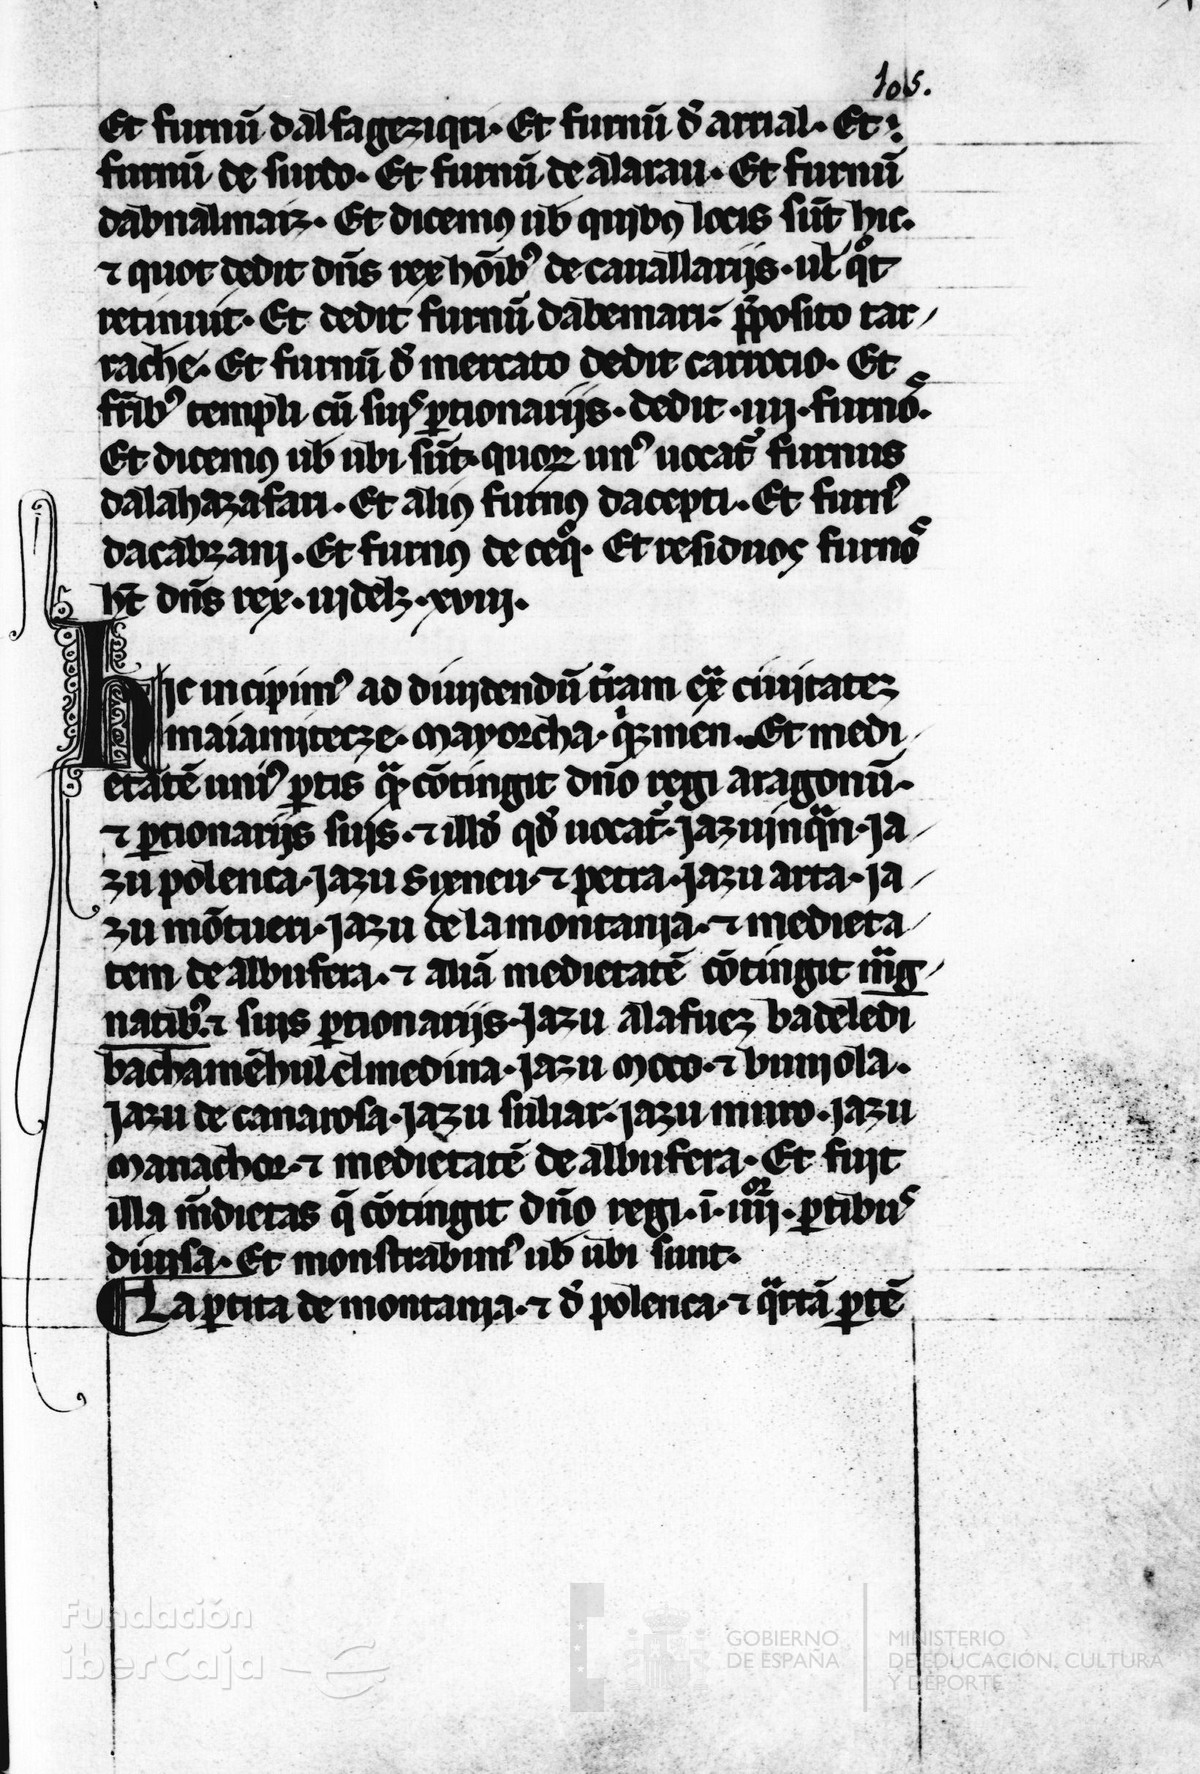 105.
Et furnū dalfageziqri. Et furnū đ arrial. Et
furnū de surdo. Et furnū de alarau. Et furnū
dabnalmaiz. Et dicemꝰ ub quibꝰ locis sūt hic.
⁊ quot dedit dn̄s rex hōibꝰ de cauallarijs. ul̄ qͦt
retinuit. Et dedit furnū dabemari: p̄posito tar/
rache. Et furnū đ mercato dedit carrocio. Et
fr̄ibꝰ templi cū suis ꝑtionarijs. dedit .iiij. furnos.
Et dicemꝰ ub ubi sūt. quoꝝ unꝰ uocat᷑ furnus
dalahazafari. Et aliꝰ furnꝰ dacepti. Et furnꝰ
dacabzani. Et furnꝰ de ceqͥ. Et residuos furnos
hn̄t dn̄s rex. uidelꝫ .xviij.
hic incipimꝰ ad diuidendū t̄ram exͣ ciuitatez
maiamitecze. Mayorcha. Et medi/
etatē uniꝰ ꝑtis qͣ cōtingit dn̄o regi aragonū.
⁊ ꝑtionarijs suis. ⁊ illđ qđ uocat᷑. Jazuinqͣn. Ja/
zu polenca. Jazu sixneu. ⁊ petra. Jazu arta. Ja/
zu mōtueri. Jazu de la montania. ⁊ medieta/
tem de albufera. ⁊ aliā medietatē cōtingit mͣg/
natibꝰ. ⁊ suis ꝑtionarijs. Jazu alafuez badeledi
bachamēhul elmedina. Jazu Moco. ⁊ buniola.
Jazu de canarosa. Jazu suliar. Jazu muro. Jazu
Manachor. ⁊ medietatē de albufera. Et fuit
illa m̄dietas q̄ cōtingit dn̄o regi. ī. iiijᵒʳ. ꝑtibus
diuisa. Et monstrabimꝰ ub ubi sunt.
¶ La ꝑtita de montania. ⁊ đ polenca. ⁊ qͣrtā ꝑtē
Fundación
iberCaja
GOBIERNO
DE ESPAÑA
MINISTERIO
DE EDUCACIÓN, CULTURA
Y DEPORTE